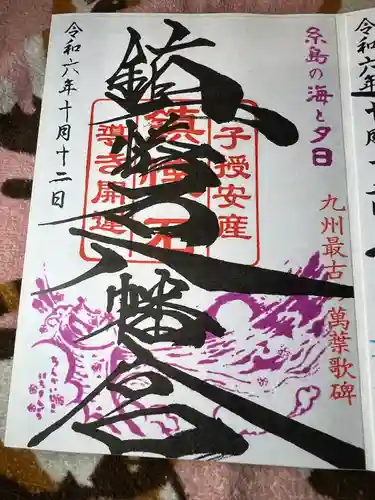 糸島の海と夕日
九州最古の萬葉歌碑
子授安産
鎮懐石
導き開運
鎮懐石八幡宮
令和六年十月十二日
令和六年十月十二